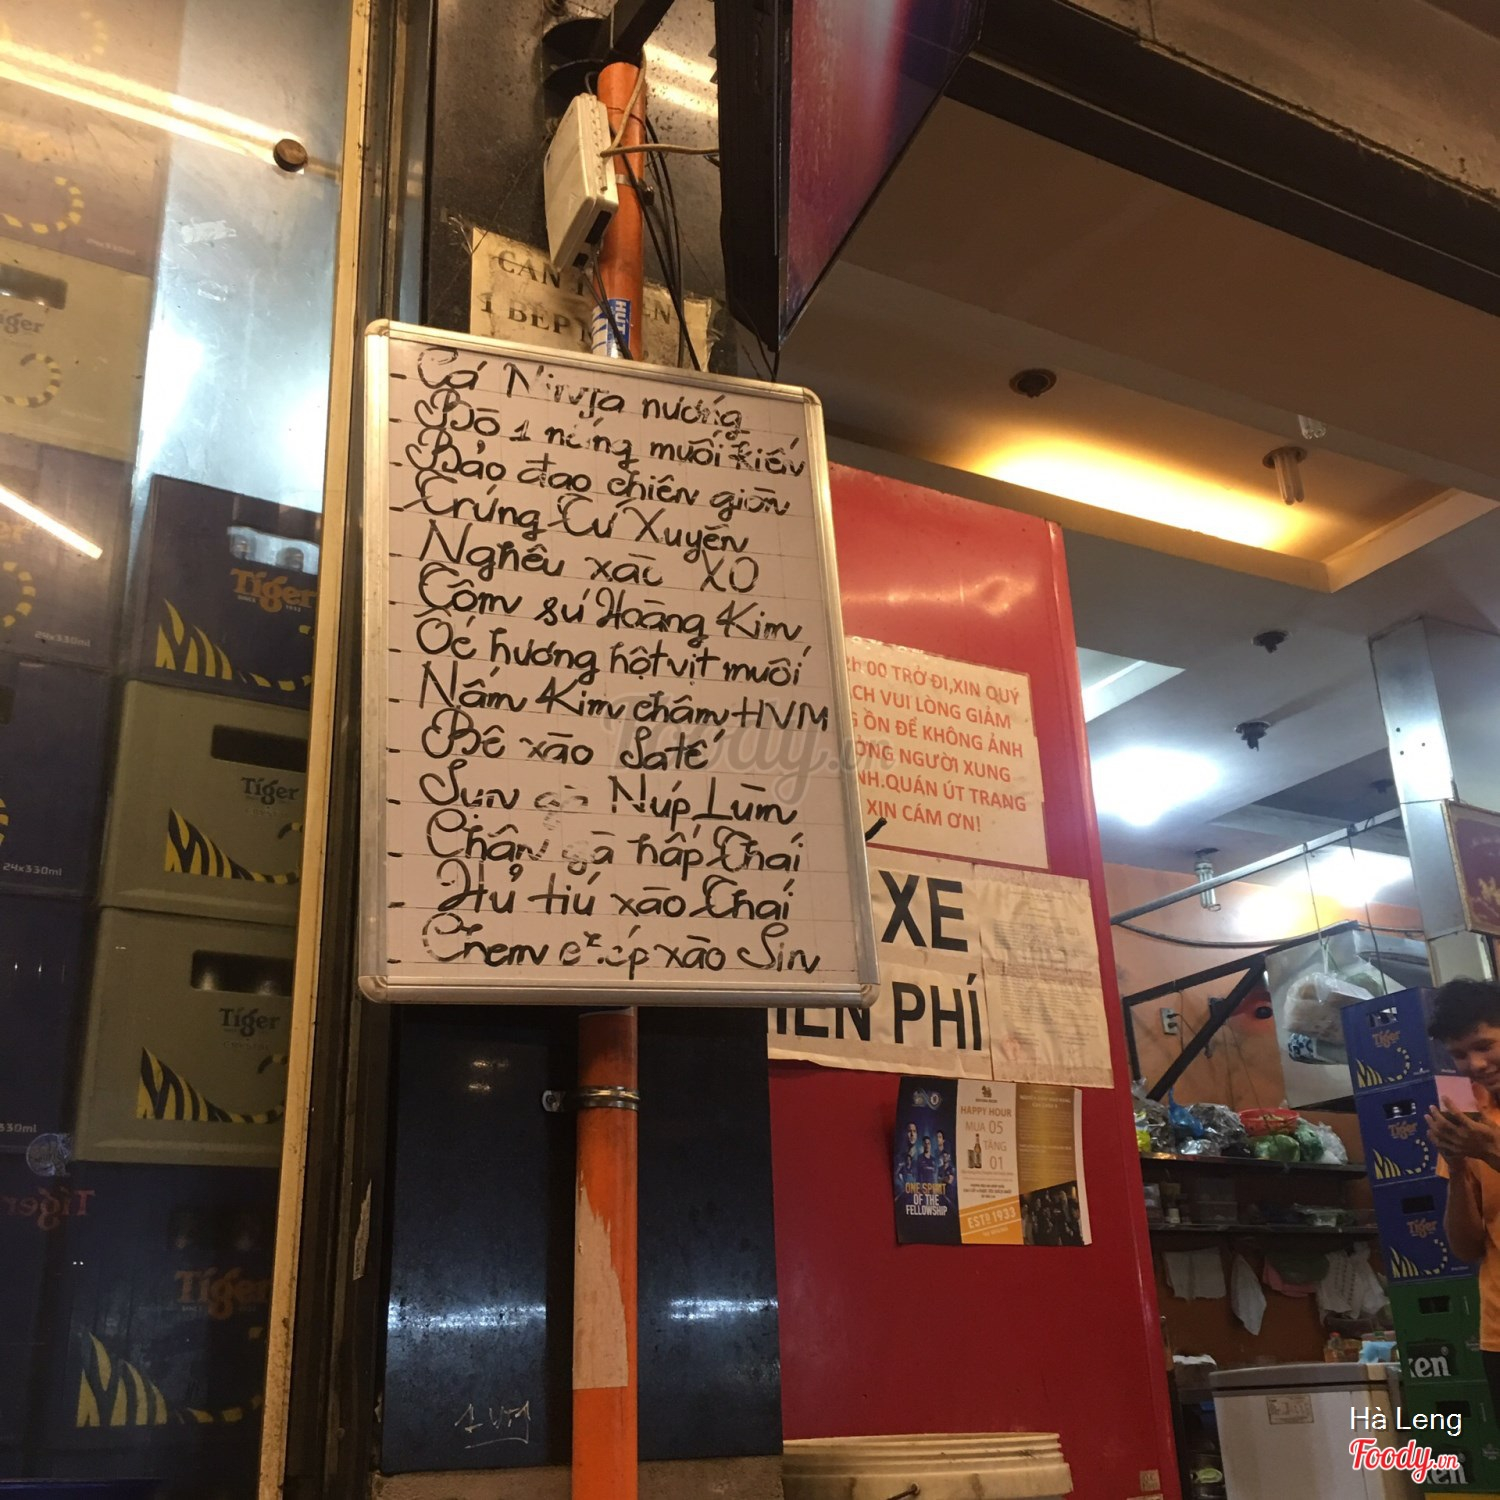 - Cá Ninja nướng
- Bò 1 nắng muối kiến
- Bào đao chiên giòn
- Trứng Tứ Xuyên
- Nghêu xào XO
- Tôm sú Hoàng Kim
- Ốc hương hột vịt muối
- Nấm Kim châm HVM
- Bê xào Saté
- Sụn gà Núp Lùm
- Chân gà hấp Thái
- Hủ tiú xào Thái
- Chem chép xào Sin
1 BẾP
HUT
2h.00 TRỞ ĐI,XIN QUÝ
CH VUI LÒNG GIẢM
G ỒN ĐỂ KHÔNG ẢNH
ỞNG NGƯỜI XUNG
NH.QUÁN ÚT TRANG
XIN CÁM ƠN!
XE
IỄN PHÍ
HAPPY HOUR
MUA 05
TẶNG
01
ONE SPIRIT
OF THE
FELLOWSHIP
ESTD 1933
Tiger
24x330ml
Tiger
Tiger
24x330ml
Tiger
Tiger
Tiger
Tiger
Tiger
ken
ken
Foody.vn
Hà Leng
Foody.vn